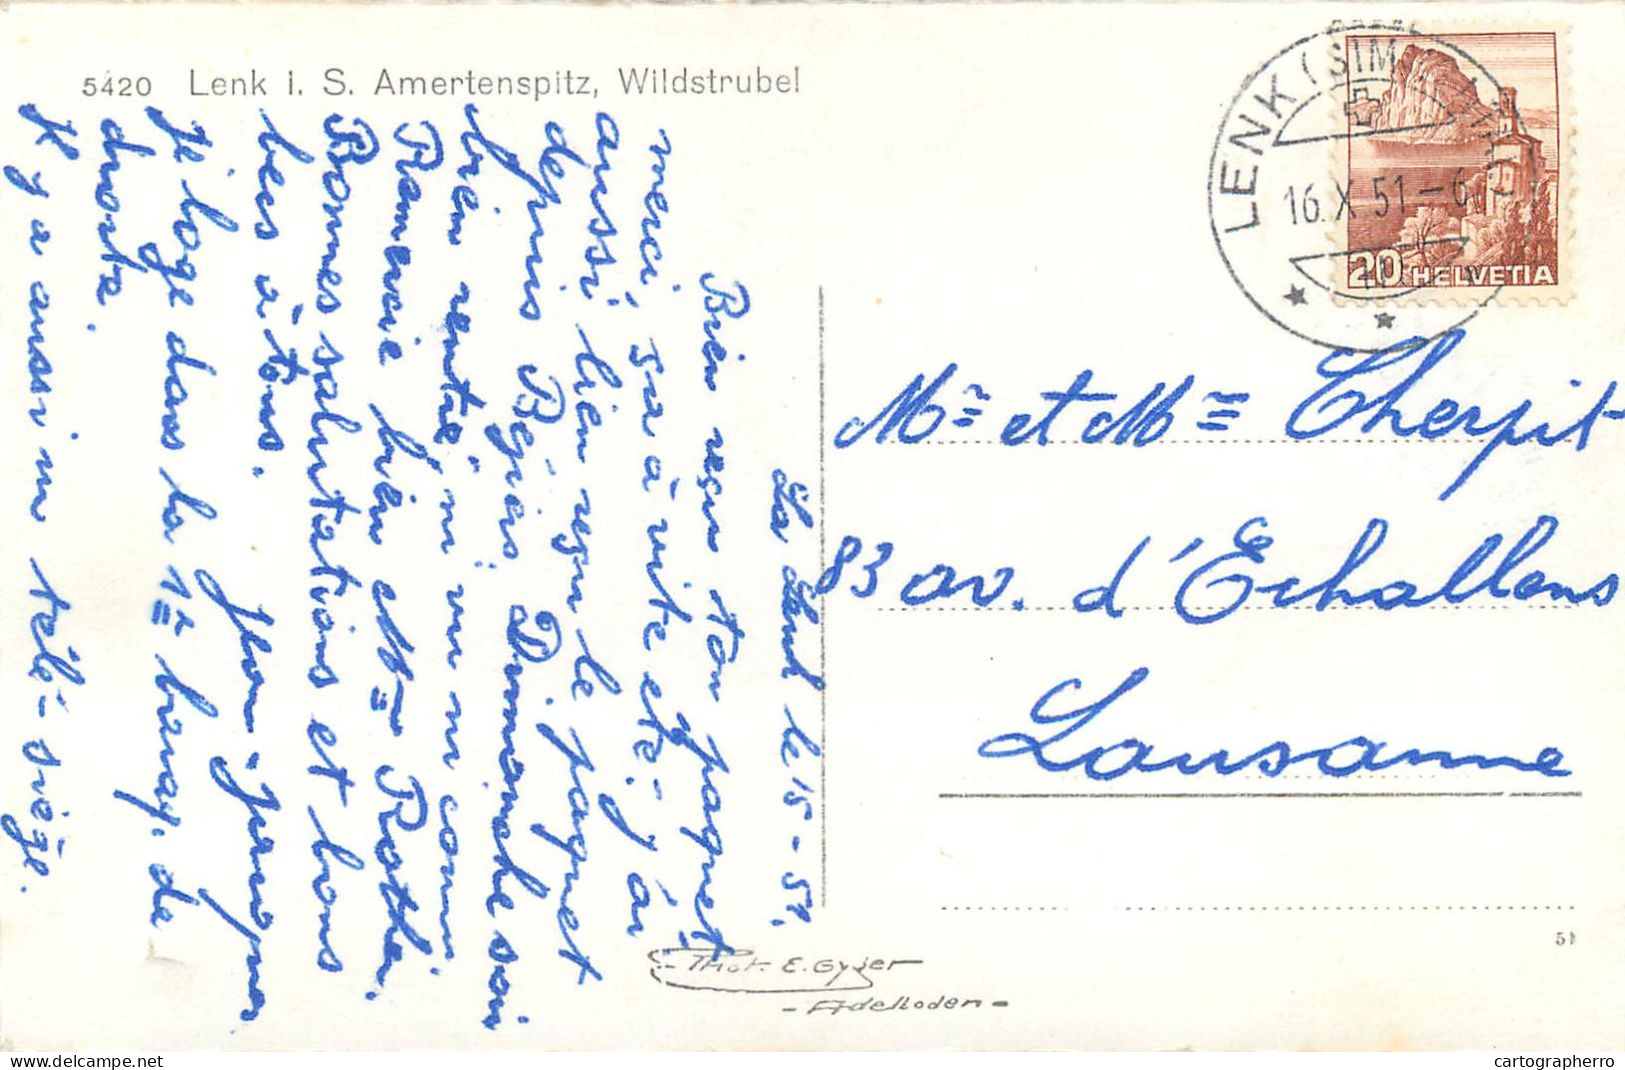 5420 Lenk i. S. Amertenspitz, Wildstrubel
LENK (SIMMENTAL)
16.X.51-6
20 HELVETIA
La Lenk le 15-51.
Bien reçu ton paquet
merci, ça a vite été, j'ai
aussi bien reçu le paquet
depuis Bégies. Dimanche soir
bien rentré, ni vu ni connu.
Remercie bien et Mr Rother.
Bonnes salutations et bons
bers à tous.
Je loge dans la 1ère baraq. de
droite.
Il y a aussi un télé-siège.
Mr et Mme Cherpit
83 av. d'Echallens
Lausanne
51
Phot. E. Gyger
- Adelboden -
cartographerro